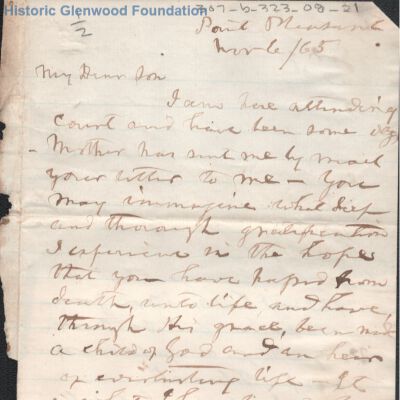 Historic Glenwood Foundation
307-b-323-08-21
1/2
Point Pleasant
Nov 6/65
My Dear Son
I am here attending
court and have been some days
Mother has sent me by mail
your letter to me - You
may immagine what deep
and thorough gratification
I experience in the hope
that you have passed from
death unto life, and have,
through His grace, been made
a child of God and an heir
of everlasting life -